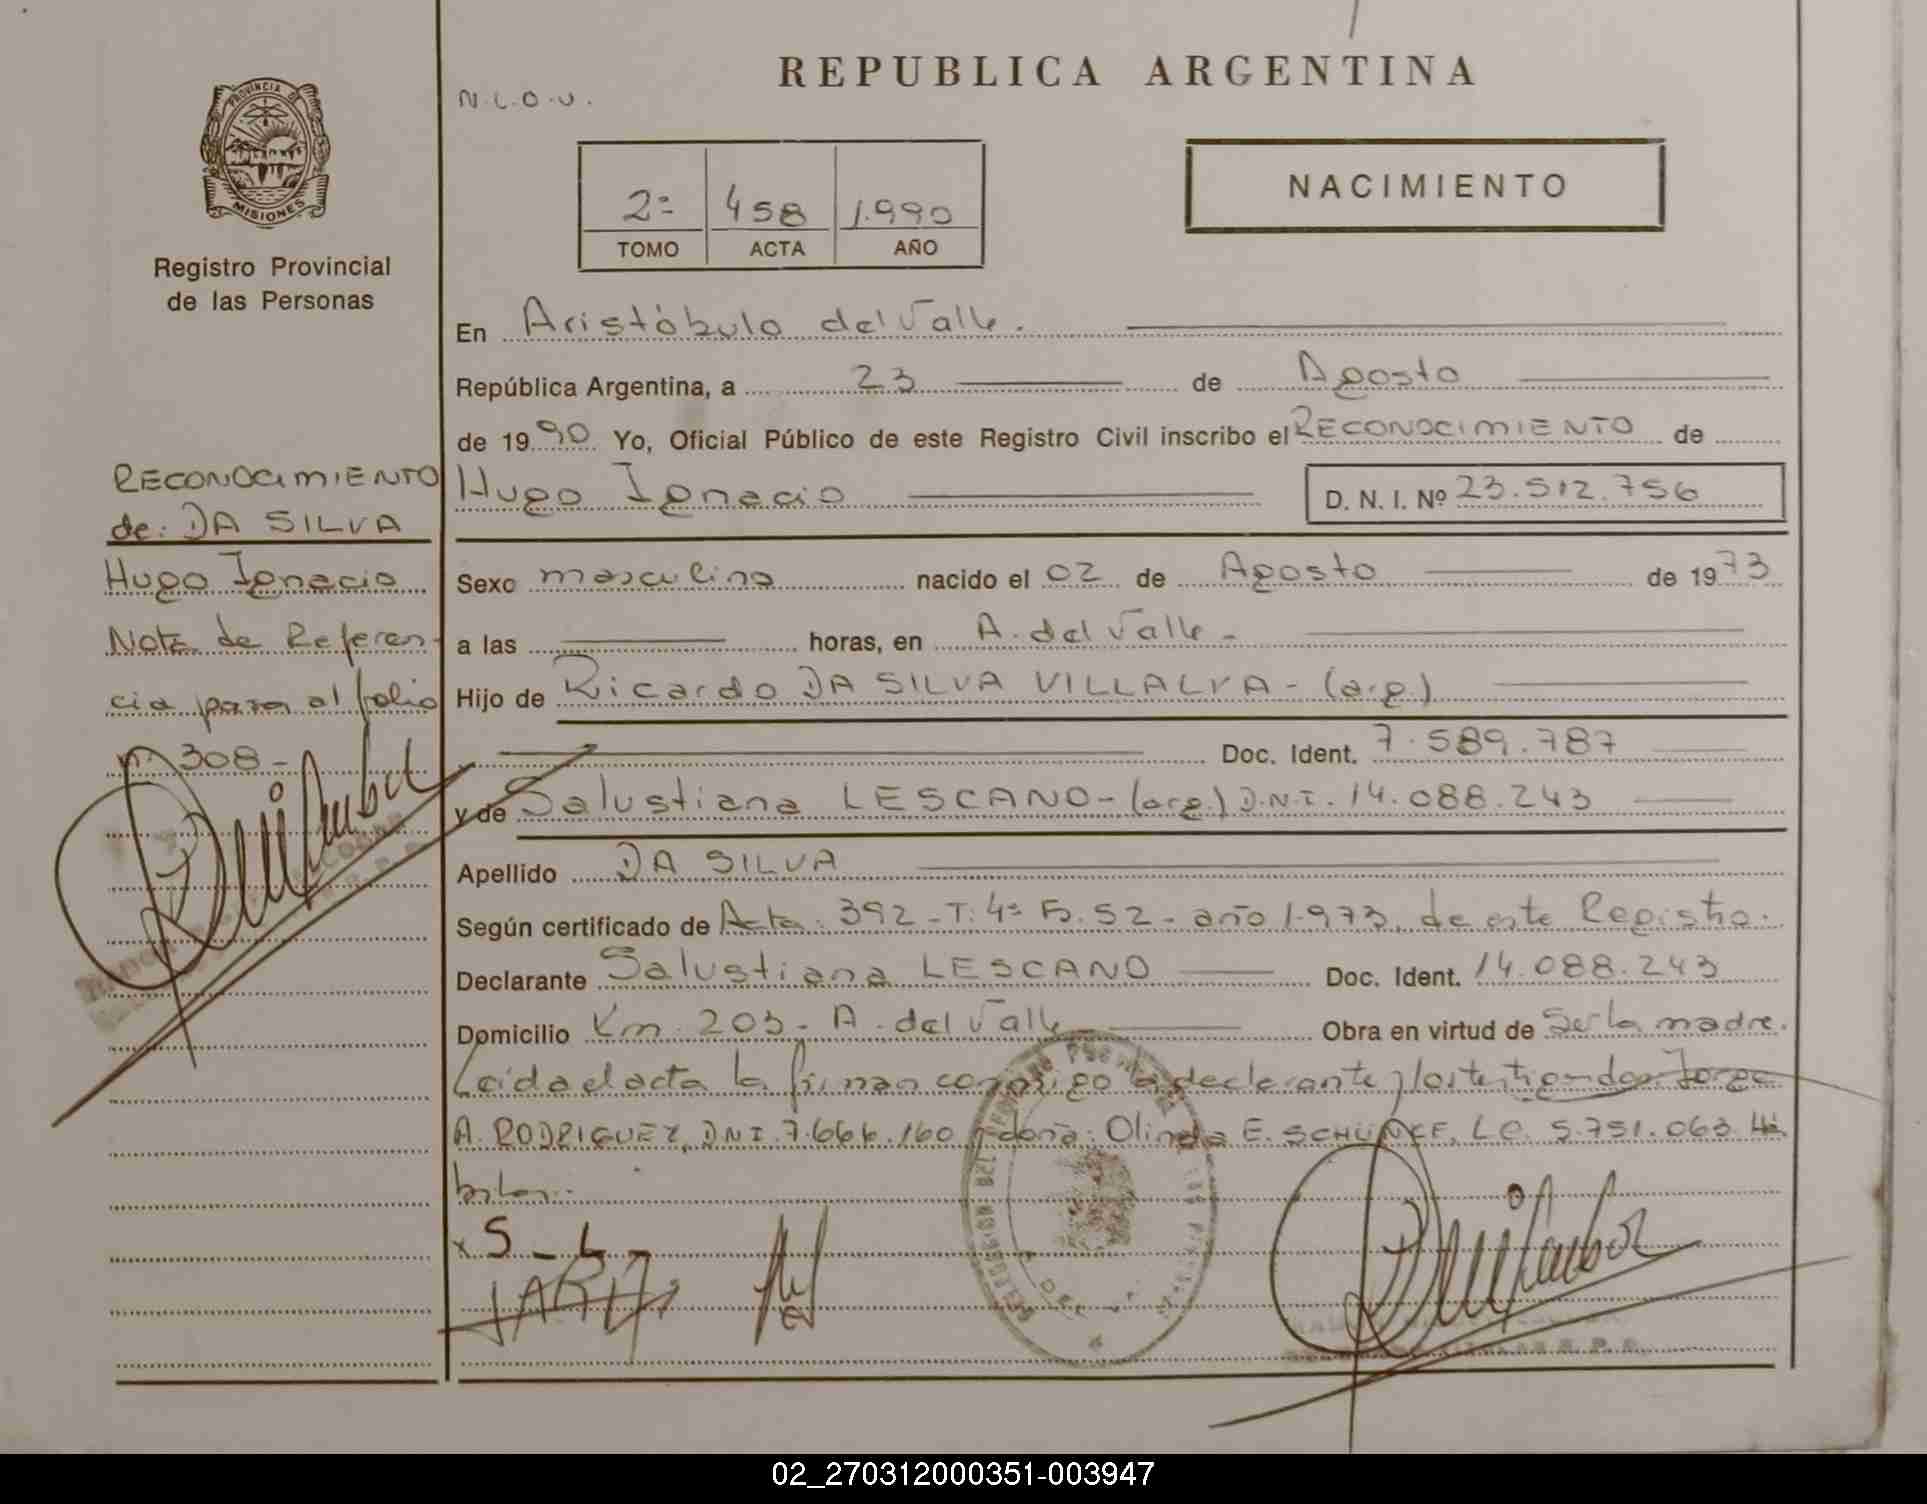 REPUBLICA ARGENTINA
N.L.O.U.
PROVINCIA DE
MISIONES
Registro Provincial
de las Personas
2º 458 1.990
TOMO ACTA AÑO
NACIMIENTO
En Aristóbulo del Valle.
República Argentina, a 23 de Agosto
de 1990 Yo, Oficial Público de este Registro Civil inscribo el RECONOCIMIENTO de
Hugo Ignacio D. N. I. Nº 23.512.756
Sexo masculino nacido el 02 de Agosto de 1973
a las horas, en A. del Valle -
Hijo de Ricardo DA SILVA VILLALVA - (arg.)
Doc. Ident. 7.589.787
y de Salustiana LESCANO - (arg.) D.N.I. 14.088.243
Apellido DA SILVA
Según certificado de Acta: 392 - T: 4º Fº. 52 - año 1.973, de este Registro.
Declarante Salustiana LESCANO Doc. Ident. 14.088.243
Domicilio Km. 203 - A. del Valle Obra en virtud de Ser la madre.
Leida el acta la firman conmigo la declarante y los testigos don Jorge
A. RODRIGUEZ, DNI. 7.666.160 y doña: Olinda E. SCHUNKE, LC. 5.751.063 Há
biles.
x S - L -
RECONOCIMIENTO
de: DA SILVA
Hugo Ignacio
Nota de Referen-
cia pasa al folio
nº 308 -
02_270312000351-003947